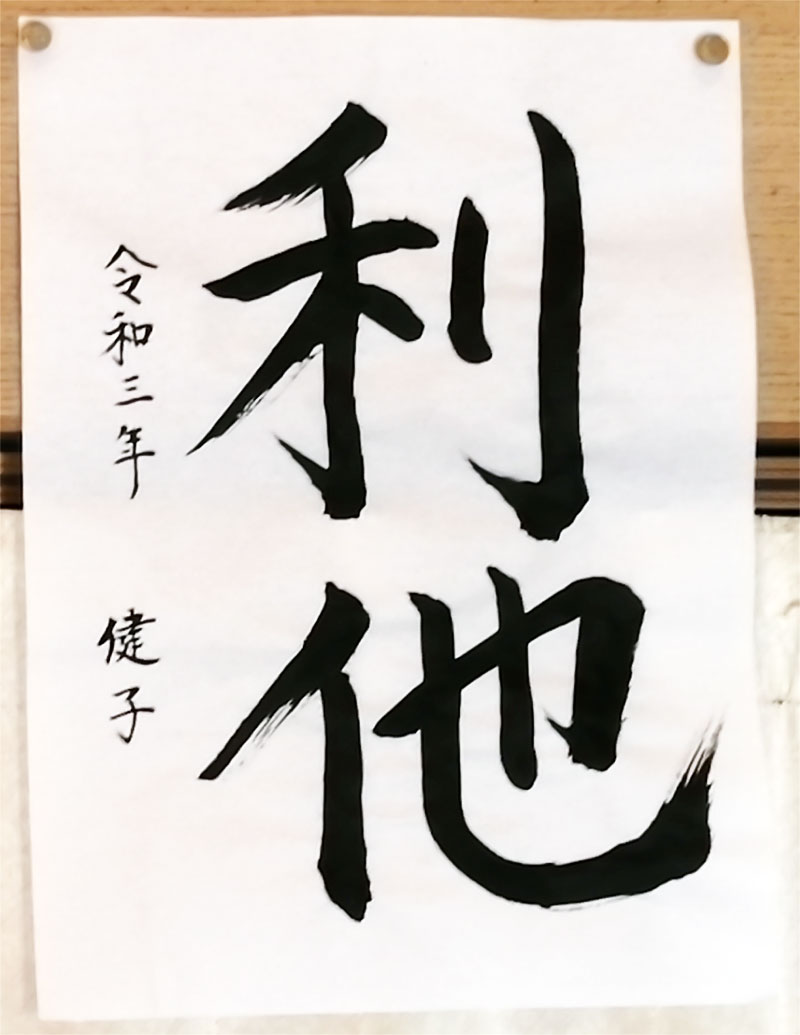 利他
令和三年 健子